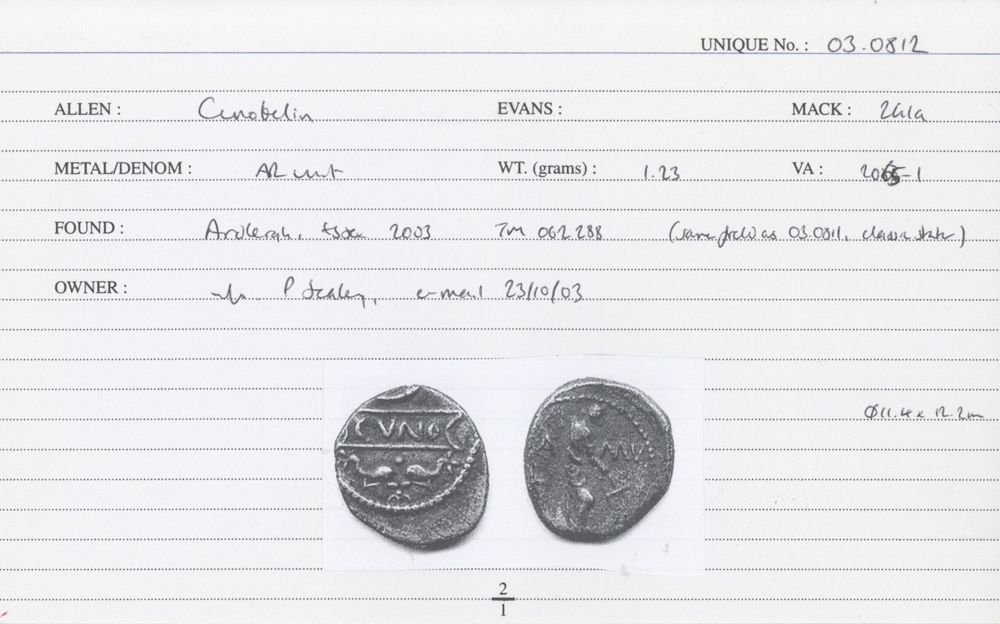 UNIQUE No. : 03.0812
ALLEN : Cunobelin EVANS : MACK : 241a
METAL/DENOM : AR unit WT. (grams) : 1.23 VA : 2065-1
FOUND : Ardleigh, Essex 2003 TM 062 288 (same field as 03.0811, classic stater)
OWNER : P Sealey, e-mail 23/10/03
Ø 11.4 x 12.2m
CVNO
MIA
2
1